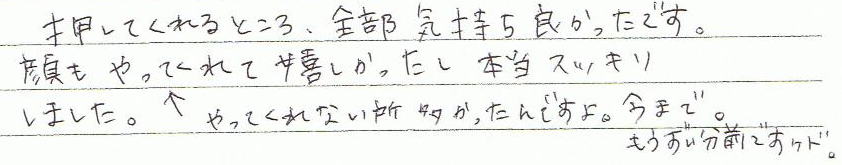 押してくれるところ、全部気持ち良かったです。
顔もやってくれて嬉しかったし本当スッキリ
しました。↑やってくれない所多かったんですよ。今まで。
もうずい分前ですケド。